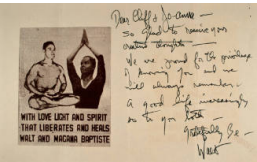 WITH LOVE LIGHT AND SPIRIT
THAT LIBERATES AND HEALS
WALT AND MAGANA BAPTISTE
Dear Cliff & Joanne —
so good to receive your
We are proud for the privilege
of knowing you and we
will always remember.
A good life increasingly
so to you both —
Gratefully Be —
Walt